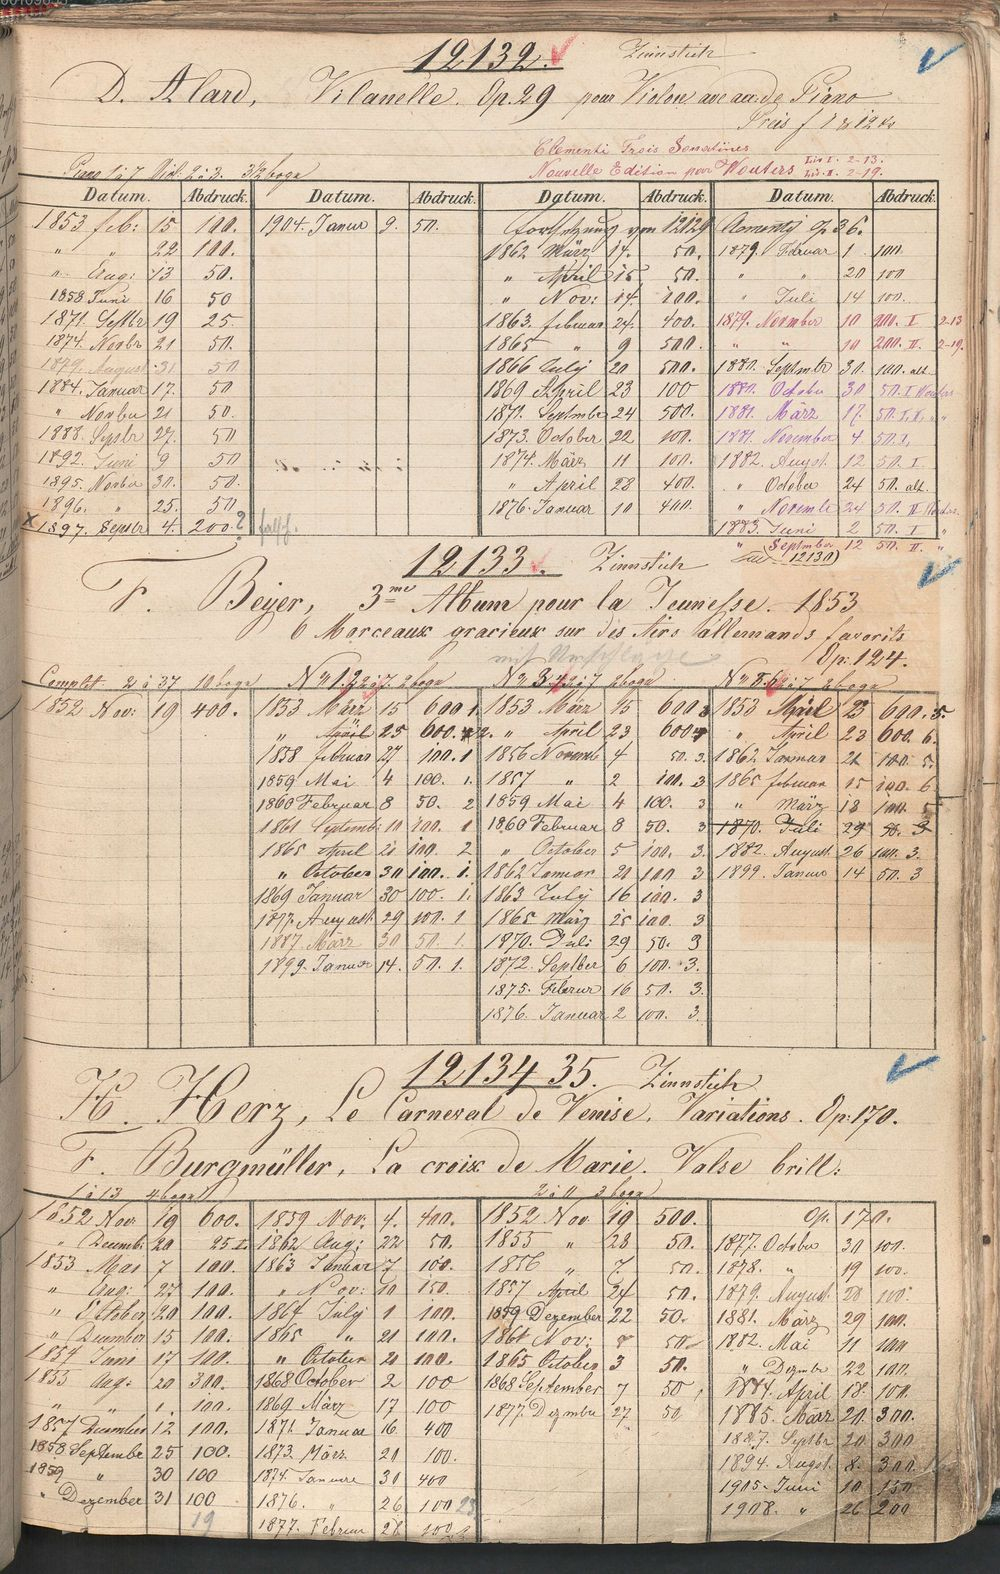 12132. Zinnstich
D. Alard, Vilanelle. Op. 29 pour Violon avec acc: de Piano
Preis f 1 12
Clementi Trois Sonatines
Nouvelle Edition pour Wouters Liv I. 2-13.
Liv. II. 2-19.
Piano 1 à 7 Viol: 2 à 2. 3½ bogn
Datum. Abdruck. Datum. Abdruck. Datum. Abdruck. Datum. Abdruck.
1853 feb: 15 100.
" " 22 100.
" Aug: 13 50.
1858 Juni 16 50
1871. Septbr 19 25.
1874. Novbr 21 50.
1879. August 31 50
1884. Januar 17. 50
" Novbr 21 50.
1888. Septbr 27. 50
1892. Juni 9 50
1895. Novbr 30. 50.
1896. " 25. 50
x 1897. Septbr 4. 200.?
1904. Januar 9. 50.
Fortsetzung von 12129
1862 März 14. 50.
" April 15 50.
" Nov: 14. 100.
1863. februar 24. 400.
1865 " 9 500.
1866 July 20 500.
1869 April 23 100
1871. September 24 500.
1873. October 22 100.
1874. März 11 100.
" April 28 400.
1876. Januar 10 400.
Clementi Op 36.
1879. Februar 1 100.
" " 20 100
" Juli 14 100.
1879. November 10 200. I 2-13
" " 10 200. II. 2-19.
1880. Septmbr 30. 100. alt.
1880. October 30 50. I Wouters
1881. März 17. 50. I. II. " "
1881. November 4 50.
1882. August. 12 50. I.
" October 24 50. alt.
" Novemb 24 50. II Wouters.
1883. Juni 2 50. I "
" September 12 50. II. "
12133. Zinnstich
(12130)
F. Beyer, 3me Album pour la Jeunesse. 1853
6 Morceaux gracieux sur des Airs allemands favorits
mit Umschlage Op: 124.
Complet 2 à 37 10 bogn No 1.2 à 7. 2 bogn No 3.4 à 7 2 bogn. No 5.6 à 7 2 bogn
1852 Nov: 19 400.
1853 März 15 600 1.
" April 25 600. 2.
1858 februar 27 100. 1
1859 Mai 4 100. 1.
1860 Februar 8 50. 2
1861 Septemb: 10 100. 1
1865 April 20 100. 2
" October 30 100. 1.
1869 Januar 30 100. 1.
1877. August 29 100. 1
1887. März 30 50. 1.
1899. Januar 14. 50. 1.
1853 März 15 600 3
" April 23 600 4
1856 Novemb 4 50. 3.
1857 " 2 100. 3
1859 Mai 4 100. 3
1860 Februar 8 50. 3
" October 5 100. 3.
1862 Januar 20 100 3
1863 July 16 100. 3
1865 März 25 100. 3
1870. Juli 29 50. 3
1872. Septber 6 100. 3.
1875. Februar 16 50. 3.
1876. Januar 2 100. 3.
1853 April 23 600. 5.
" April 23 600. 6.
1862 Januar 21 100. 5.
1865 februar 15 100. 6
" März 18 100. 5
1870. Juli 29 50. 3
1882. August. 26 100. 3.
1899. Januar 14 50. 3
12134 35. Zinnstich
H. Herz, Le Carneval de Venise. Variations. Op: 170.
F. Burgmüller, La croix de Marie. Valse brill:
1 à 13 4 bogn 2 à 11 3 bogn
1852 Nov 19 600.
" Decemb: 20 25
1853 Mai 7 100.
" Aug: 27 100.
" October 20 100.
" December 15 100.
1854 Juni 17 100.
1855 Aug: 20 300.
" " 1. 100.
1857 December 12 100.
1858 September 25 100.
1859 " 30 100
" Dezember 31 100
19
1859 Nov: 4. 400.
1862 Aug: 22 50.
1863 Januar 7 100.
" Nov: 10 150.
1864 July 1 100.
1865 " 21 100.
" October 20 100.
1868 October 2 100
1869 März 17 100
1871. Januar 16. 400
1873. März 20 100.
1874. Januar 31 400
1876. " 26 100
1877. Februar 28 100
1852 Nov 19 500.
1855 " 28 50.
1856 " 7 50.
1857 April 24 50.
1859 Dezember 22 50.
1861 Nov: 8 50
1865 October 3 50.
1868 September 7 50
1877. Dezmber 27 50
Op. 170.
1877. October 30 100.
1878. " 19 100.
1879. August 28 100.
1881. März 29 100.
1882. Mai 11 100
" Dezmbr 22 100.
1884. April 18. 100.
1885. März 20. 300.
1887. Septbr 20 300
1894. August. 8. 300
1905. Juni 10 150
1908. " 26 200